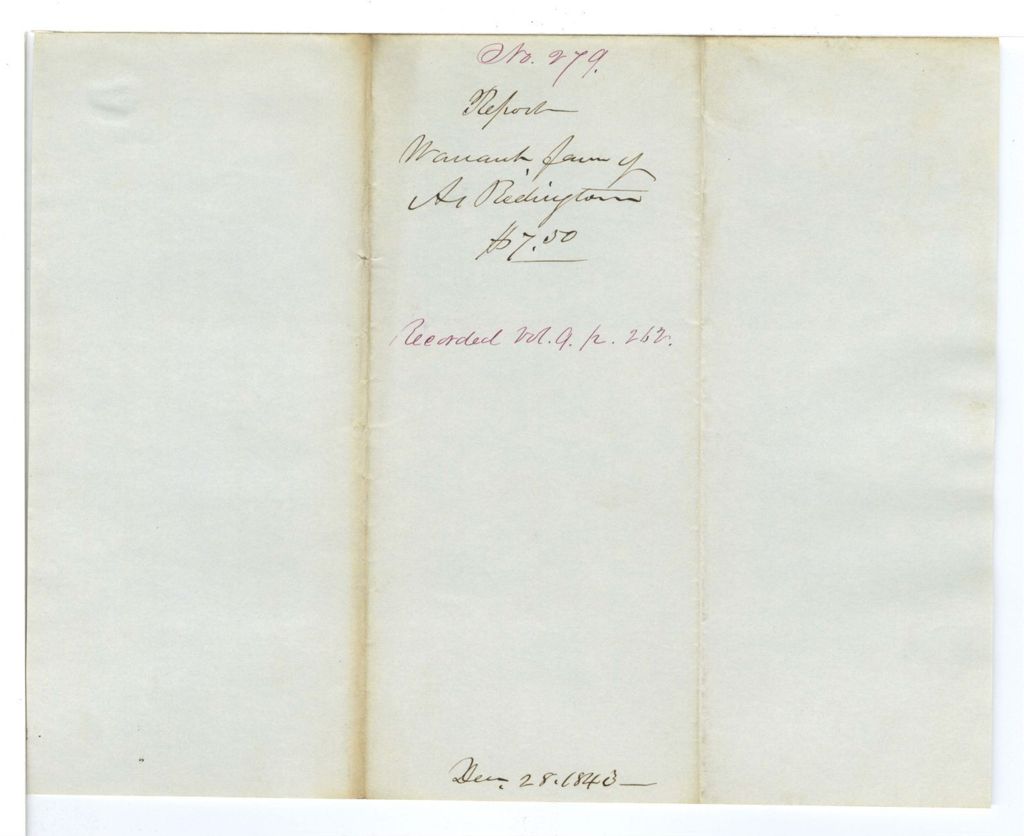 No. 279.
Report
Warrant favor of
A. Redington
$7.50
Recorded Vol. 9. p. 262.
Dec. 28. 1843